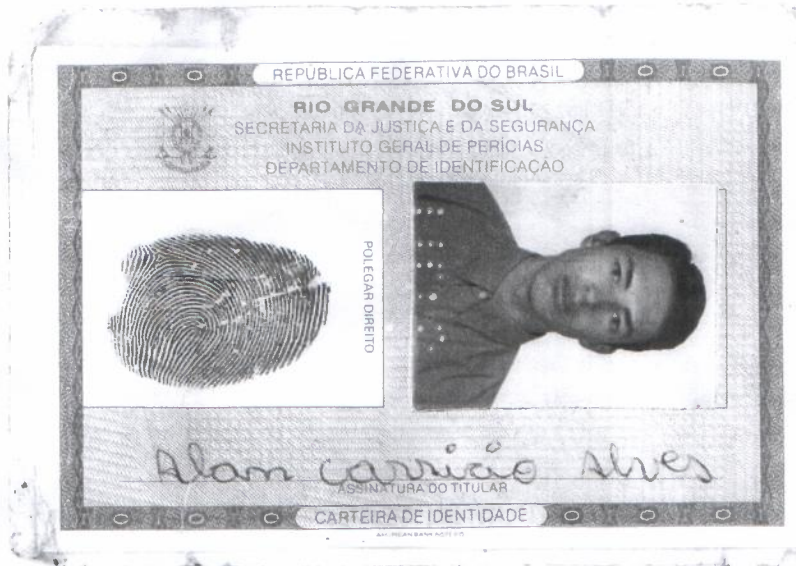 REPÚBLICA FEDERATIVA DO BRASIL
RIO GRANDE DO SUL
SECRETARIA DA JUSTIÇA E DA SEGURANÇA
INSTITUTO GERAL DE PERÍCIAS
DEPARTAMENTO DE IDENTIFICAÇÃO
POLEGAR DIREITO
Alan Carrição Alves
ASSINATURA DO TITULAR
CARTEIRA DE IDENTIDADE
AMERICAN BANK NOTE